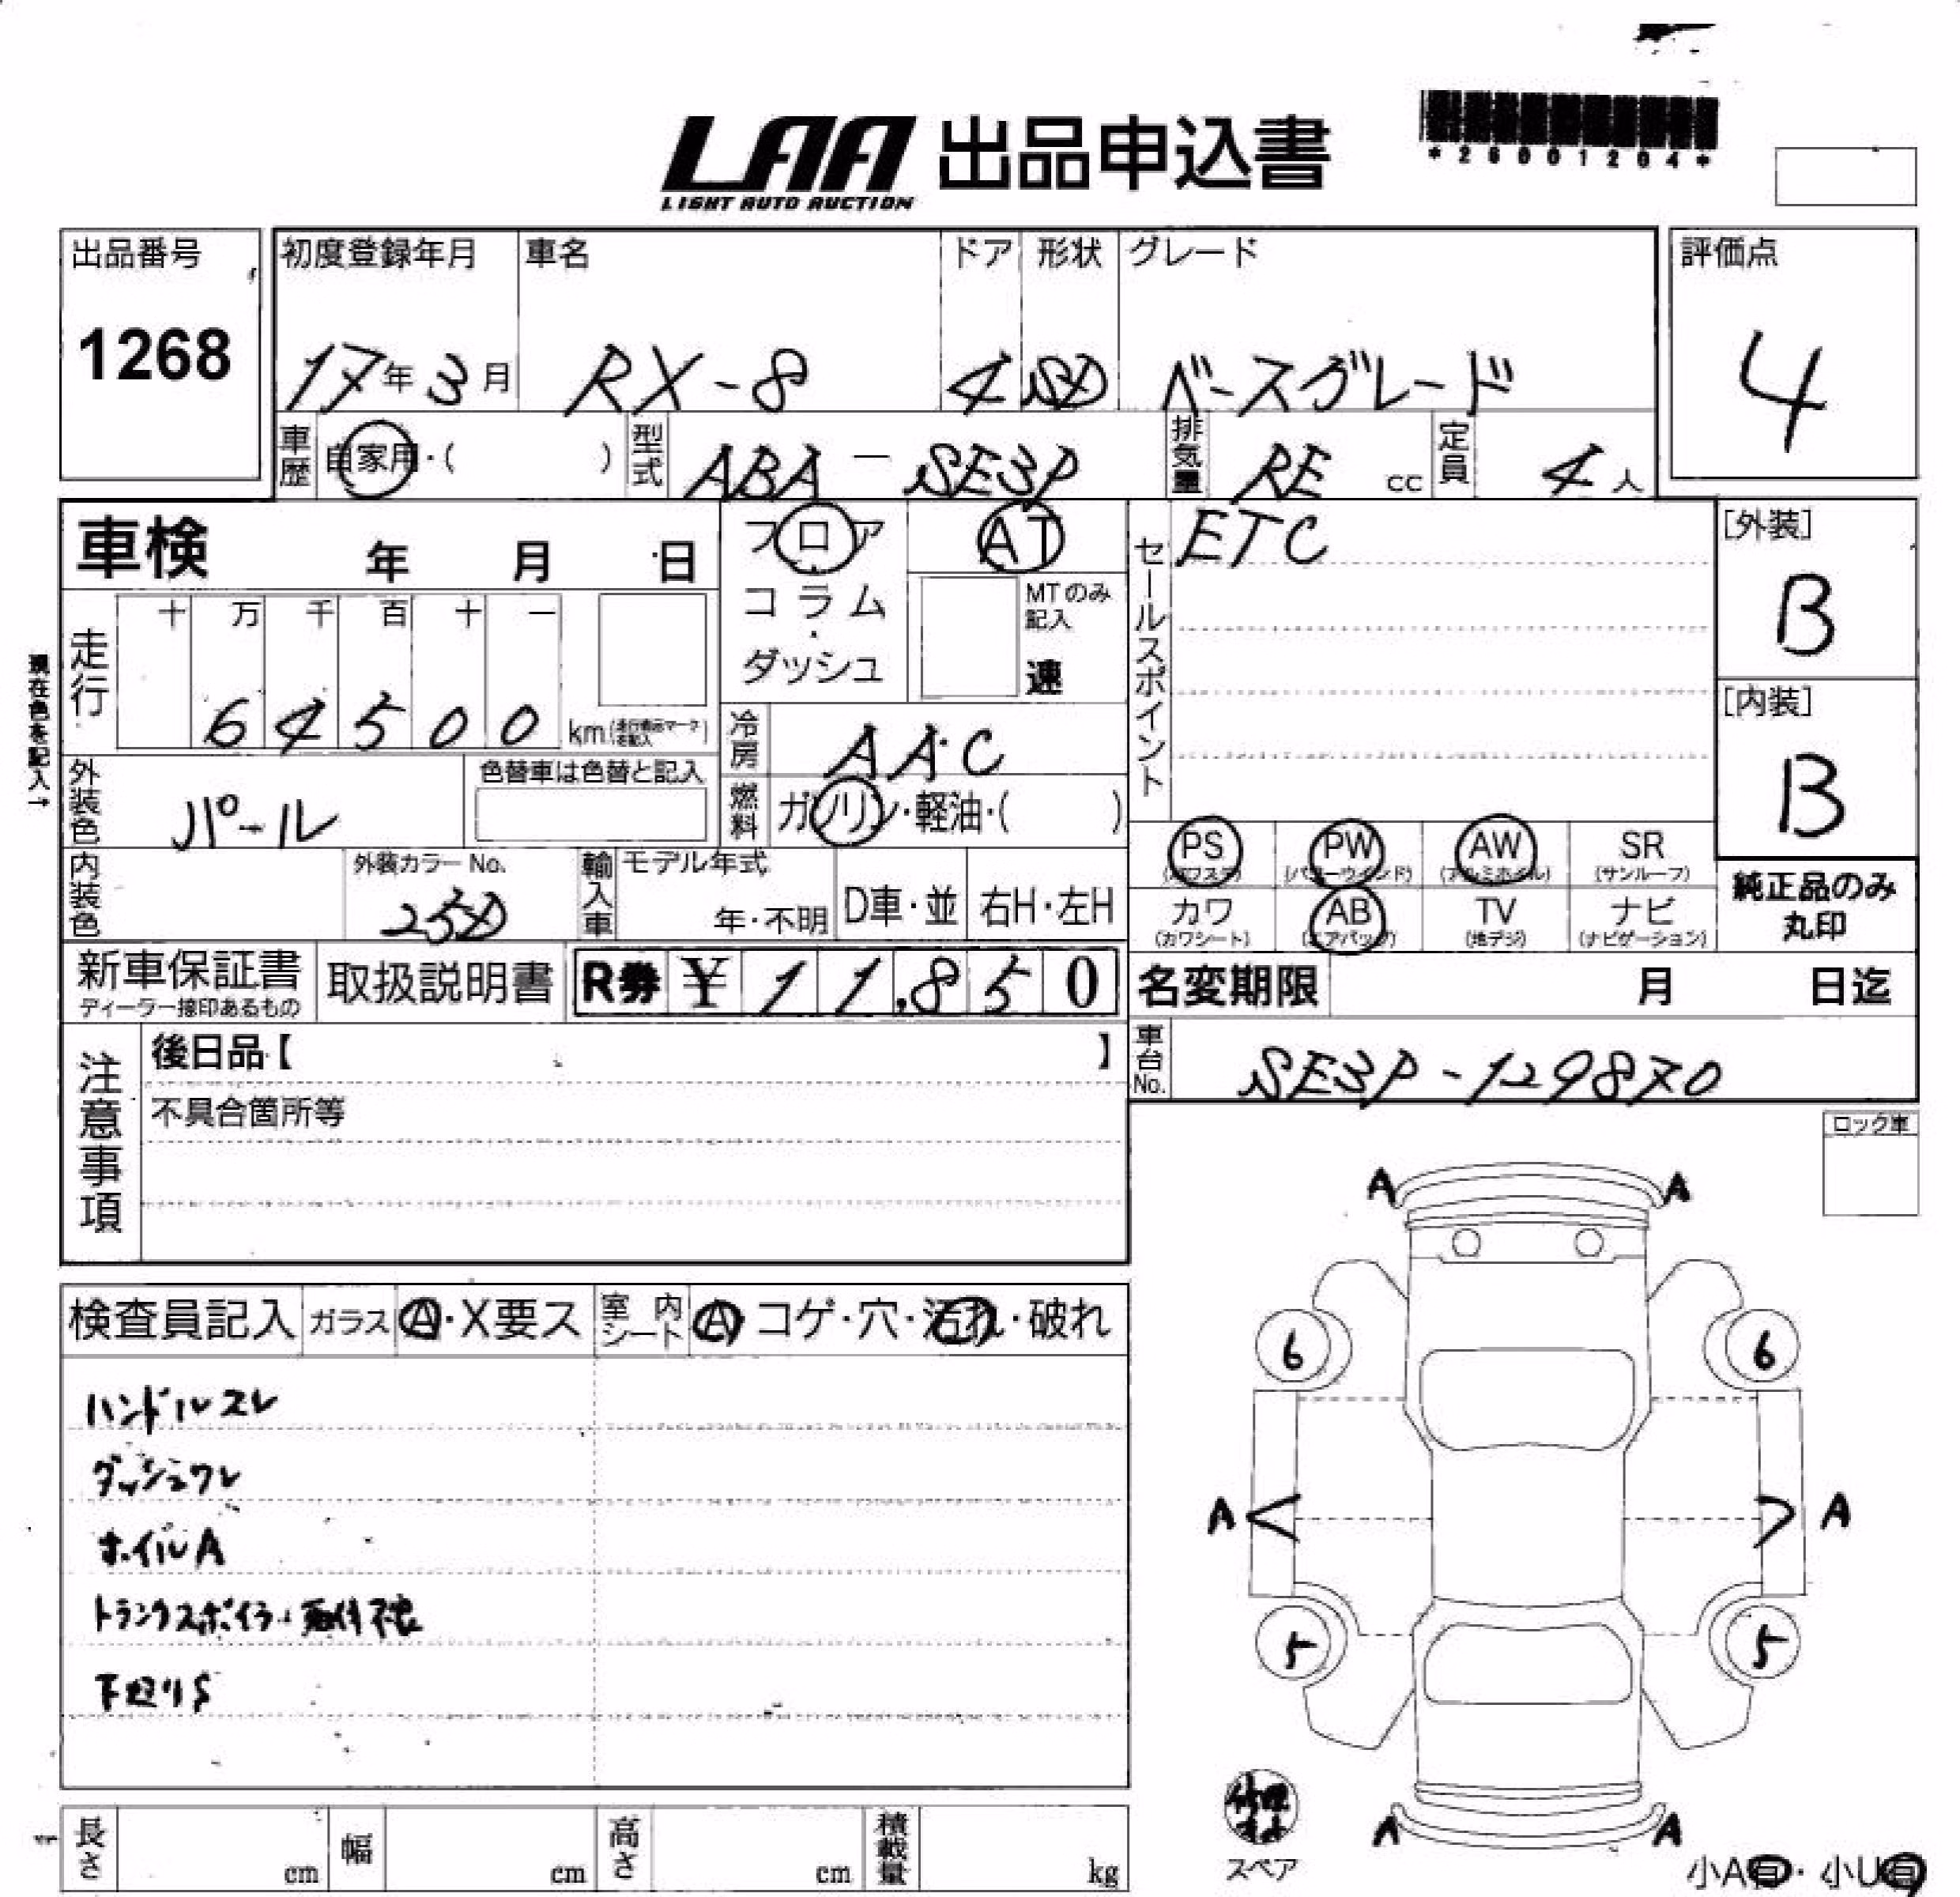 LAA 出品申込書
LIGHT AUTO AUCTION
*26001204*
出品番号 初度登録年月 車名 ドア 形状 グレード 評価点
1268 17年3月 RX-8 4 SD ベースグレード 4
車歴 自家用・( ) 型式 ABA-SE3P 排気量 RE cc 定員 4人
車検 年 月 日
フロア AT
コラム・
ダッシュ
MTのみ記入
速
セールスポイント ETC
[外装]
B
[内装]
B
現在色を記入→
走行 十 万 千 百 十 一
64500 km
冷房 AAC
外装色 パール 色替車は色替と記入
燃料 ガソリン・軽油・( )
PS PW AW SR
(パワステ) (パワーウインド) (アルミホイル) (サンルーフ)
カワ AB TV ナビ
(カワシート) (エアバッグ) (地デジ) (ナビゲーション)
純正品のみ
丸印
内装色 外装カラーNo. 輸入車 モデル年式
25D 年・不明 D車・並 右H・左H
新車保証書 取扱説明書 R券 ¥11,850
ディーラー捺印あるもの
名変期限 月 日迄
車台No. SE3P-129870
注意事項 後日品【 】
不具合箇所等
ロック車
検査員記入 ガラス A・X要ス 室内シート A コゲ・穴・汚れ・破れ
ハンドルスレ
ダッシュワレ
ホイルA
トランクスポイラー取付不良
下廻りS
A A
6 6
A A
5 5
A A
スペア
小A有・小U有
長さ cm 幅 cm 高さ cm 積載量 kg